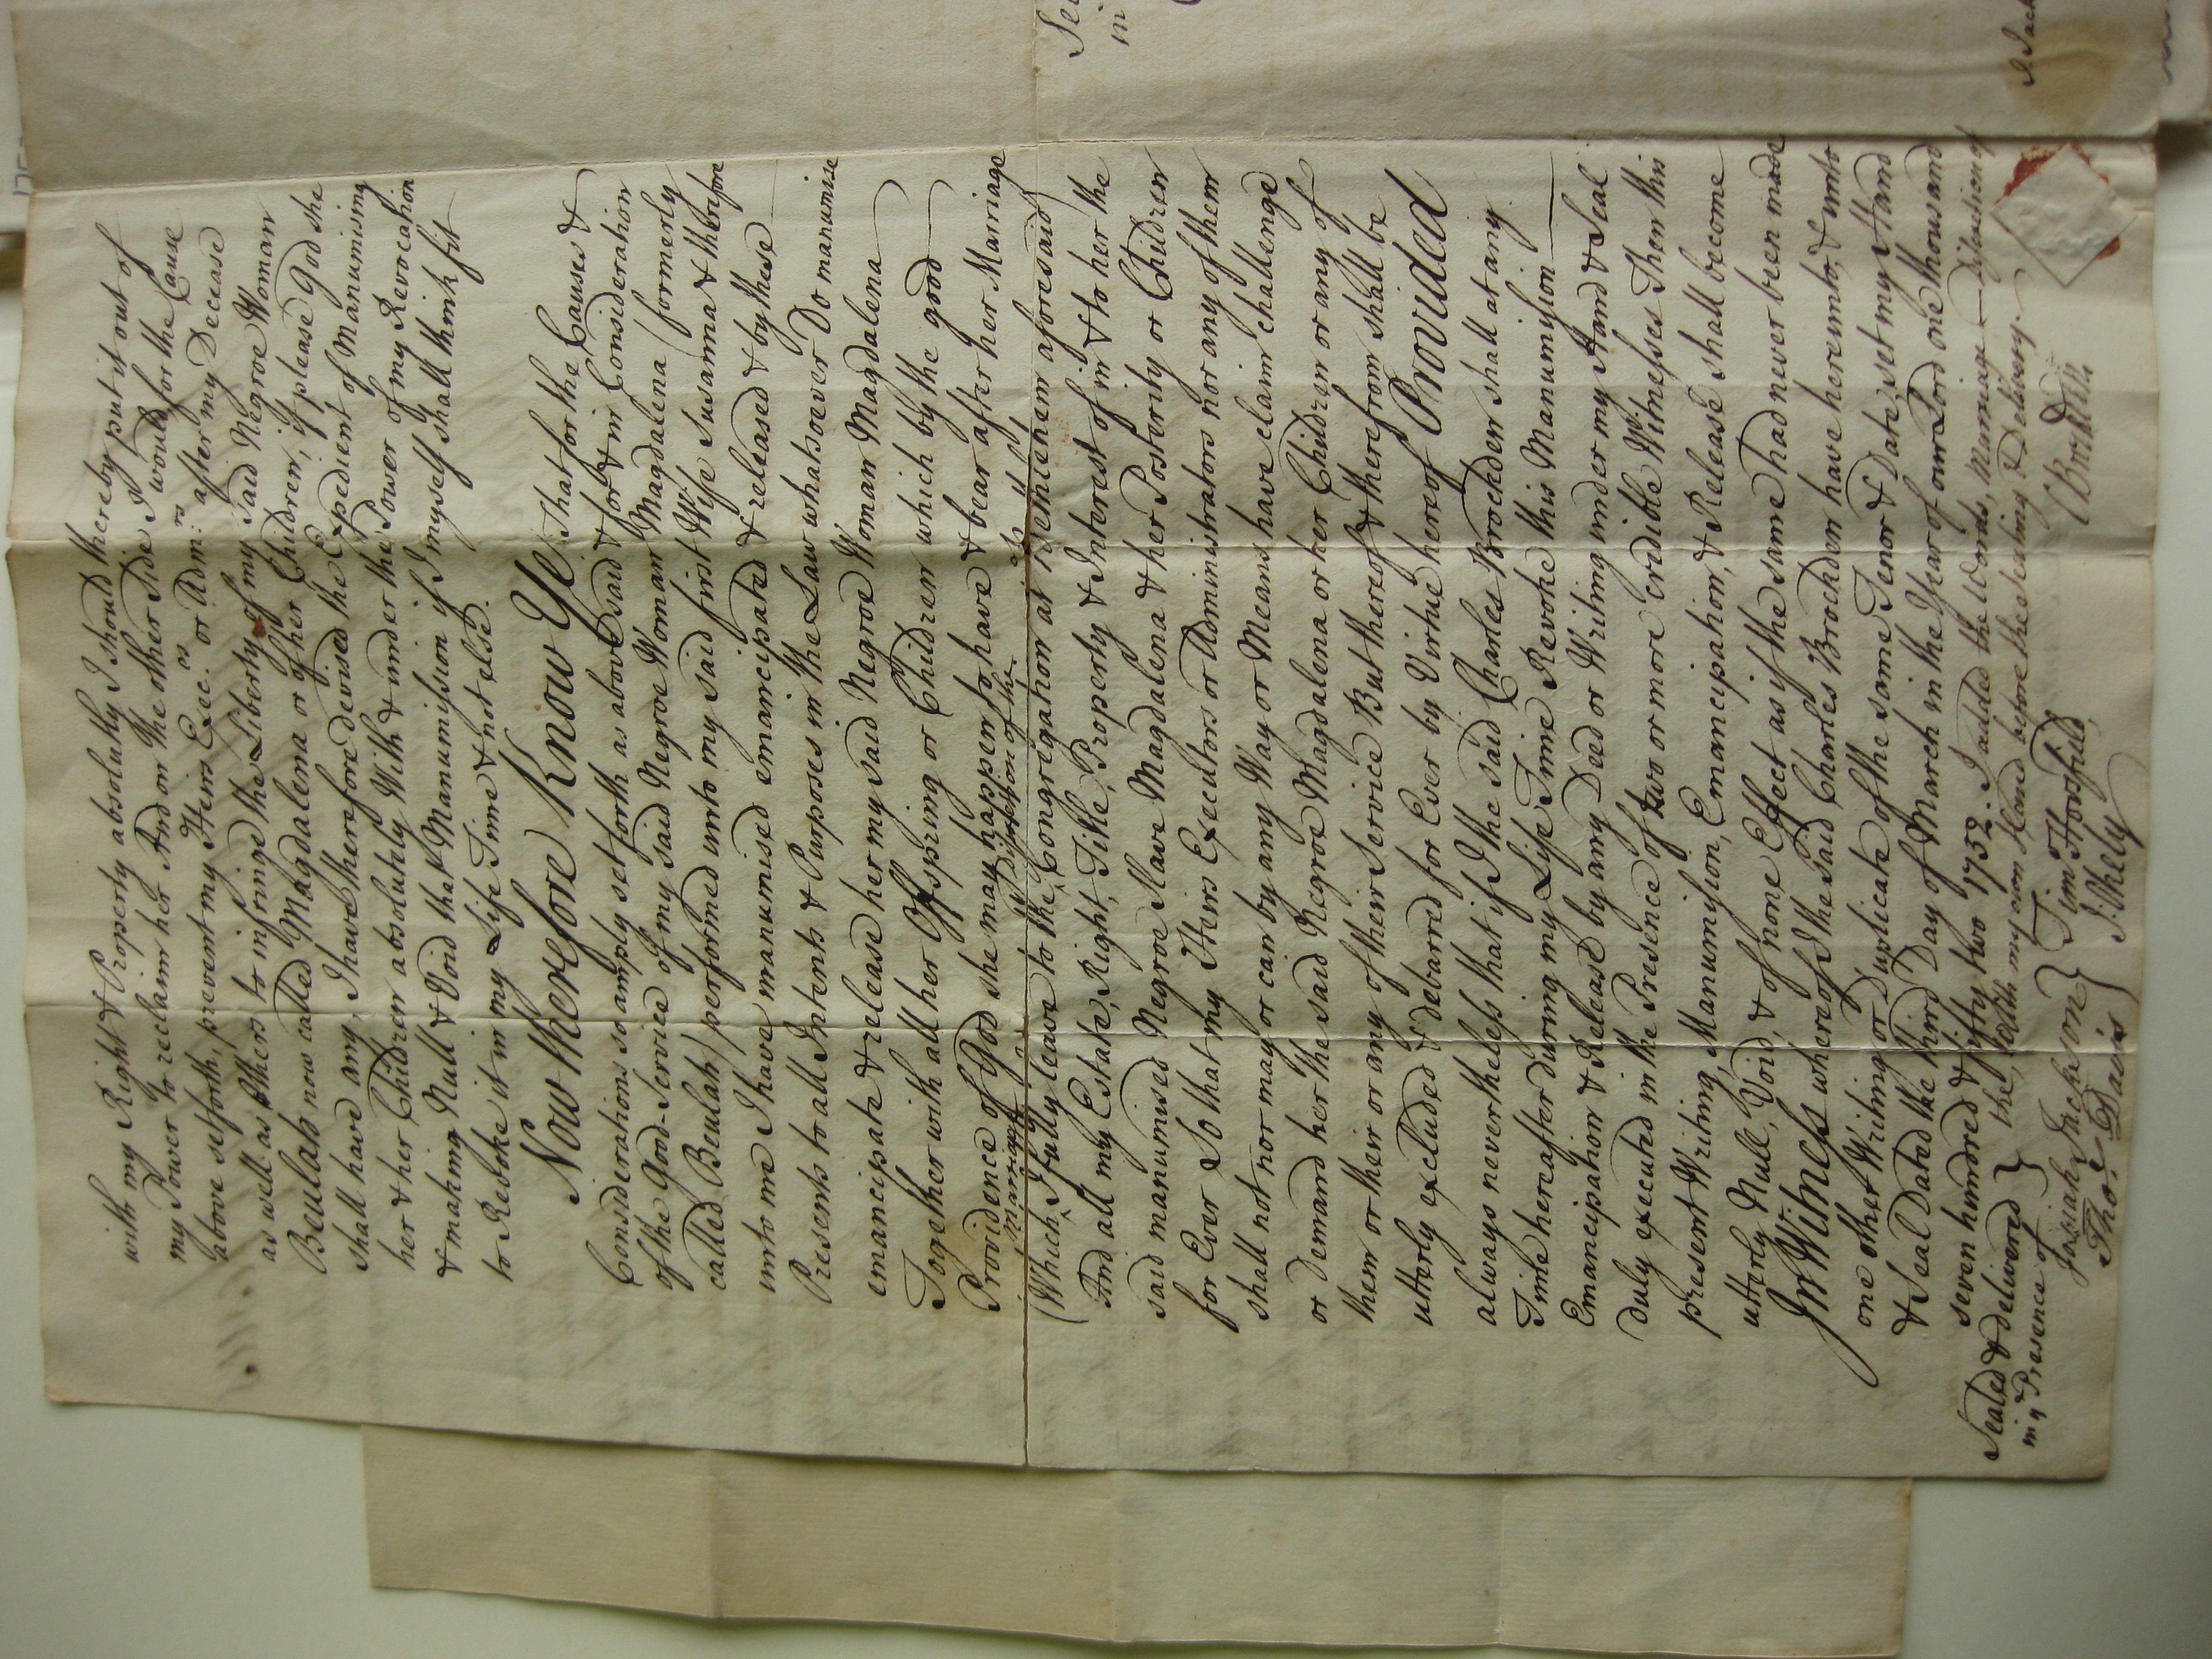 with my Right & Property absolutely I should thereby put it out of
my Power to reclaim her And on the other Side I would for the Cause
above setforth, prevent my Heirs Exec.rs or Adm:rs after my Decease
as well as others to infringe the Liberty of my said Negroe Woman
Beulah now called Magdalena or of her Children, if please God she
shall have any, I have therefore devised the Expedient of Manumising
her & her Children absolutely With & under the Power of my Revocation
& making Null & Void that Manumission if I myself shall think fit
to Revoke it in my Life Time & not else.
Now therefore Know Ye That for the Causes &
Considerations so amply set forth as above said & for & in Consideration
of the good-Service of my said Negroe Woman Magdalena (formerly
called Beulah) performed unto my said first Wife Susanna & therefore
unto me I have manumised emancipated & released & by these
Presents to all Intents & Purposes in the Law whatsoever Do manumise
emancipate & release her my said Negroe Woman Magdalena
Together with all her Offspring or Children which by the good
Providence of God she may happen to have & bear after her Marriage
(Which Marriage I fully leave to the Discretion of the Congregation at Bethlehem aforesaid)
And all my Estate, Right, Title, Property & Interest of in & to her the
said manumised Negroe Slave Magdalena & her Posterity or Children
for Ever So that my Heirs Executors or Administrators nor any of them
shall not nor may or can by any Way or Means have claim challenge
or Demand her the said Negroe Magdalena or her Children or any of
them or their or any of their Service But thereof & therefrom shall be
utterly excluded & debarred for Ever by Virtue hereof Provided
always nevertheless that if I the said Charles Brockden shall at any
Time hereafter during my Life Time Revoke this Manumission
Emancipation & Release by any Deed or Writing under my Hand & Seal
duly executed in the Presence of two or more credible Witnesses Then this
present Writing, Manumission, Emancipation, & Release shall become
utterly Null, Void, & of none Effect as if the same had never been made
In Witness whereof I the said Charles Brockden have hereunto, & unto
one other Writing or Duplicate of the same Tenor & Date, set my Hand
& Seal Dated the third Day of March in the Year of our Lord one thousand
seven hundred & fifty two 1752. I added the Words, Marriage — Discretion of
the, with my own Hand before the sealing & Delivery.
Sealed & delivered
in ye Presence of
C Brockden
Josiah Jackson
Tim Horsfield
Thos. Davis